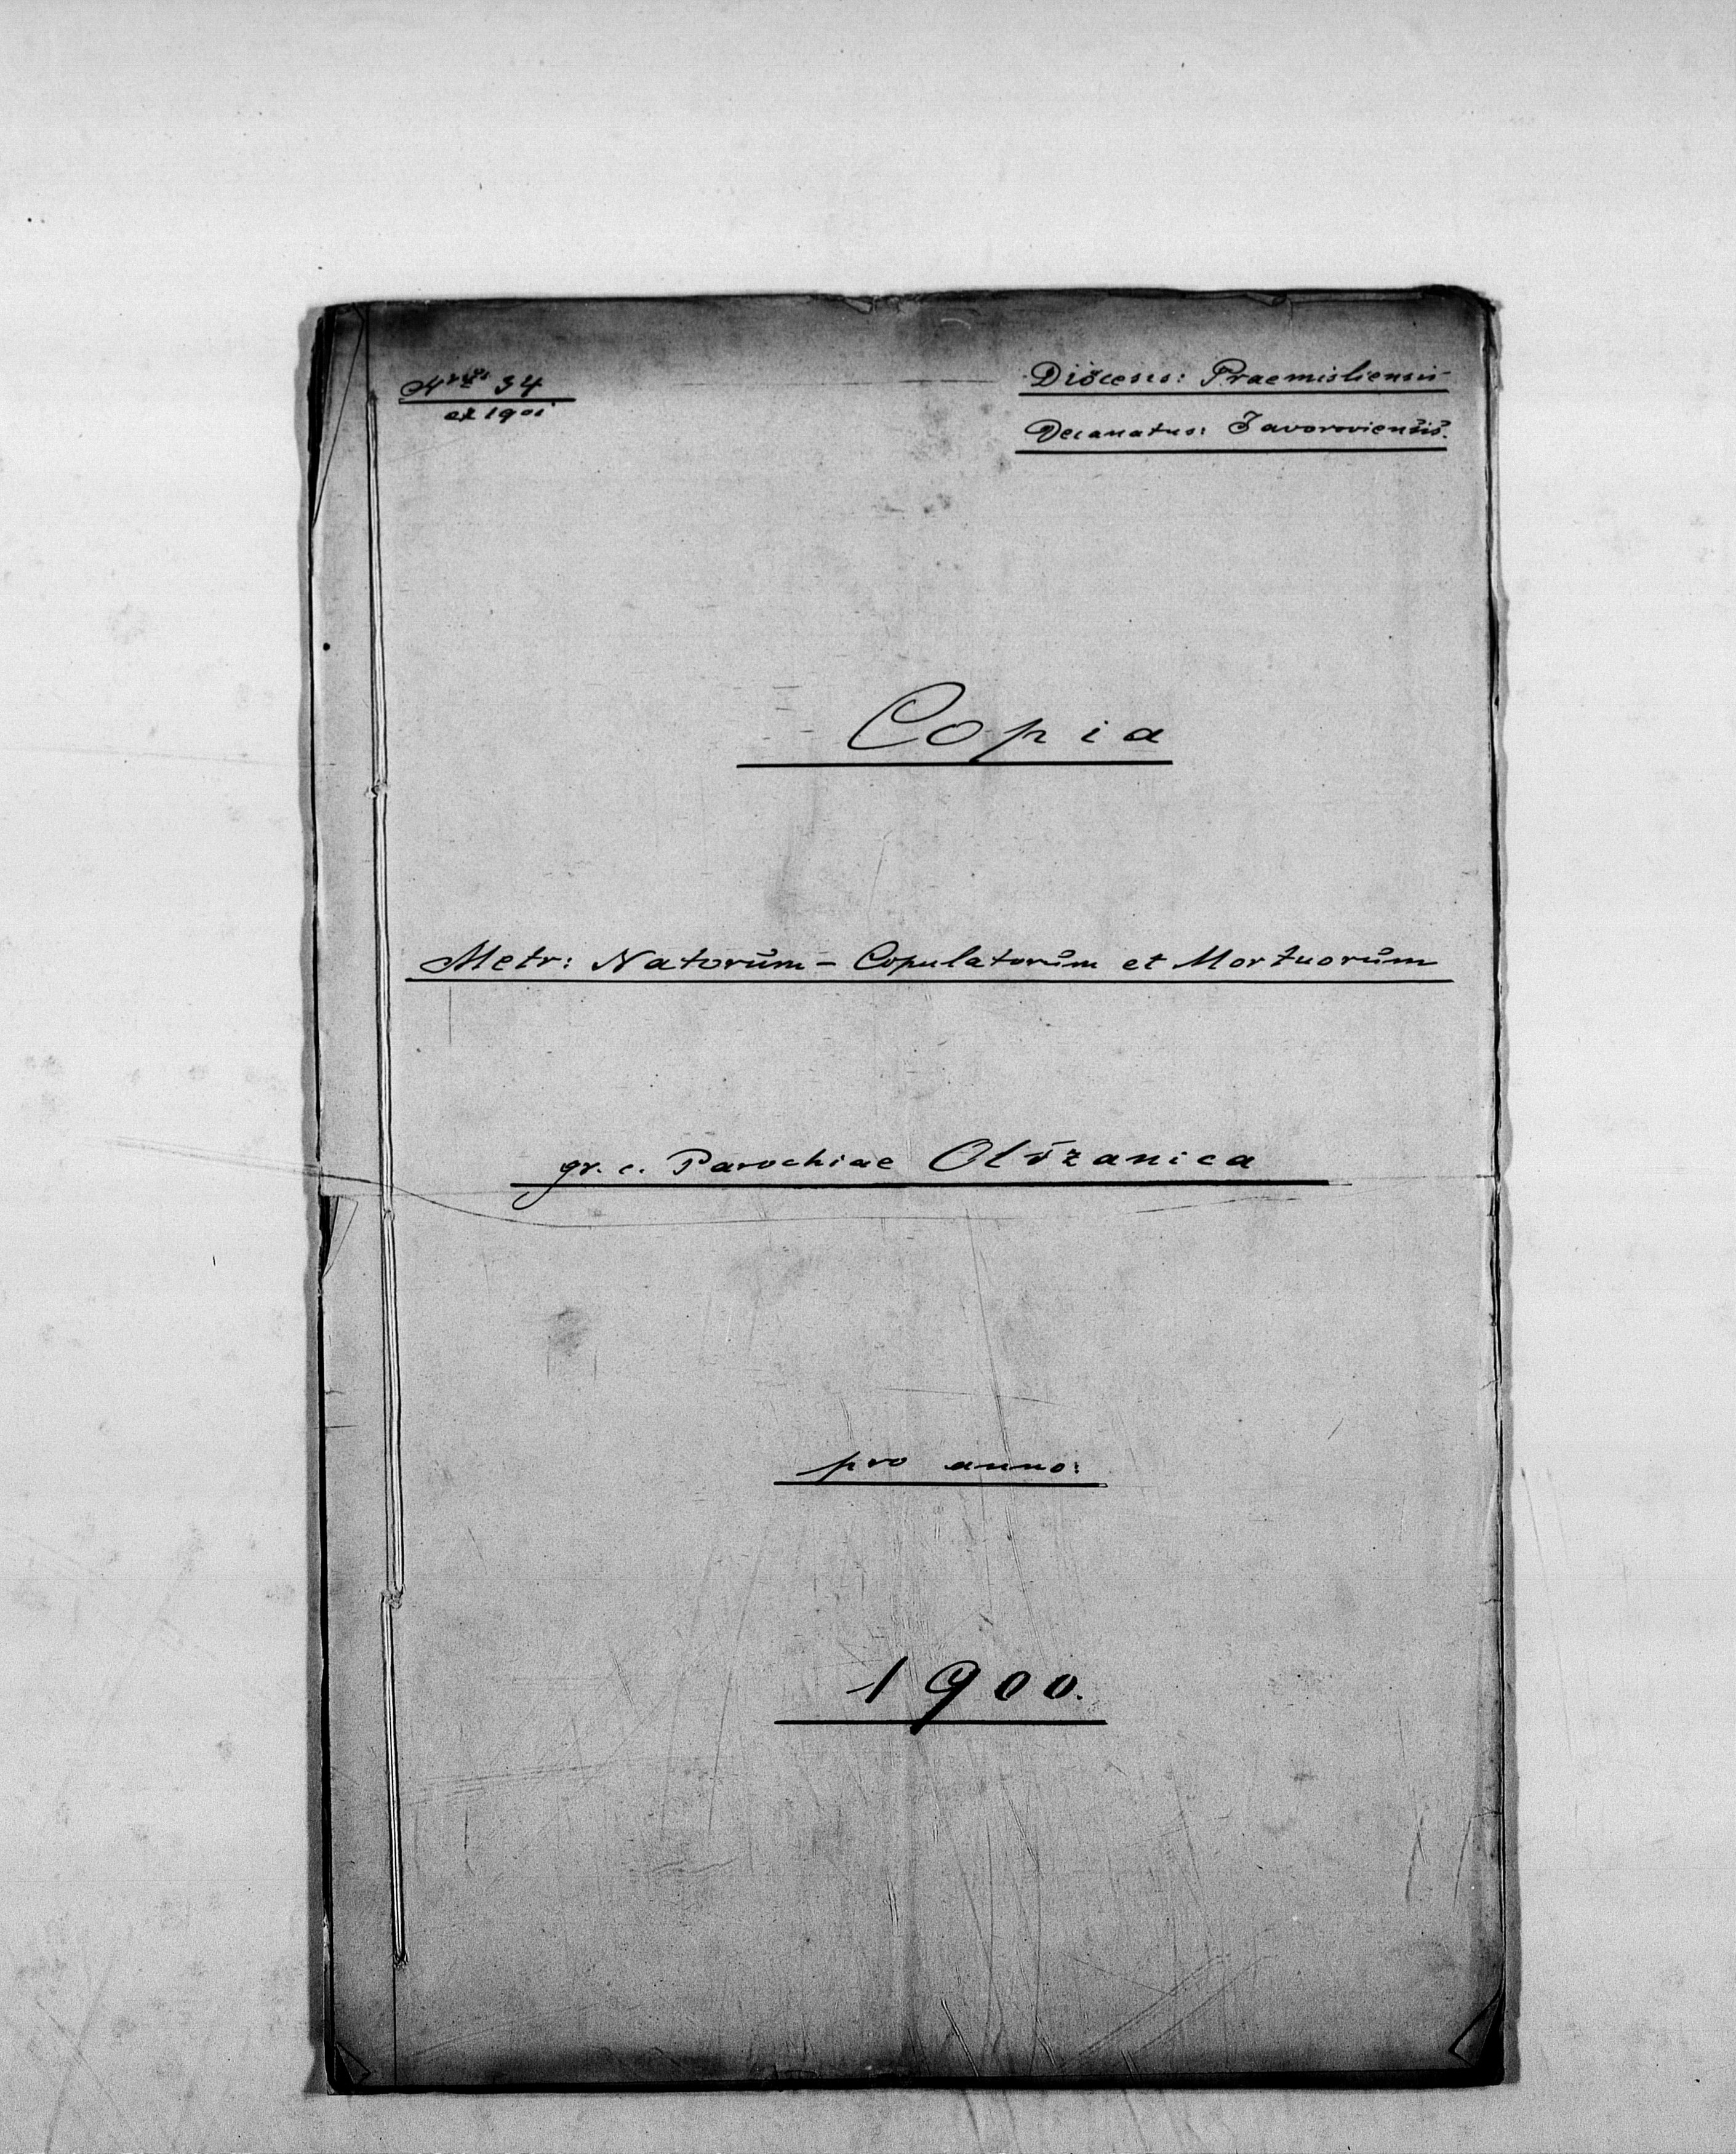 Nrus 34
ex 1901
Diöcesis: Praemisliensis
Decanatus: Javoroviensis.
Copia
Metr: Natorŭm - Copulatorŭm et Mortuorŭm
gr. c. Parochiae Olszanica
pro anno:
1900.